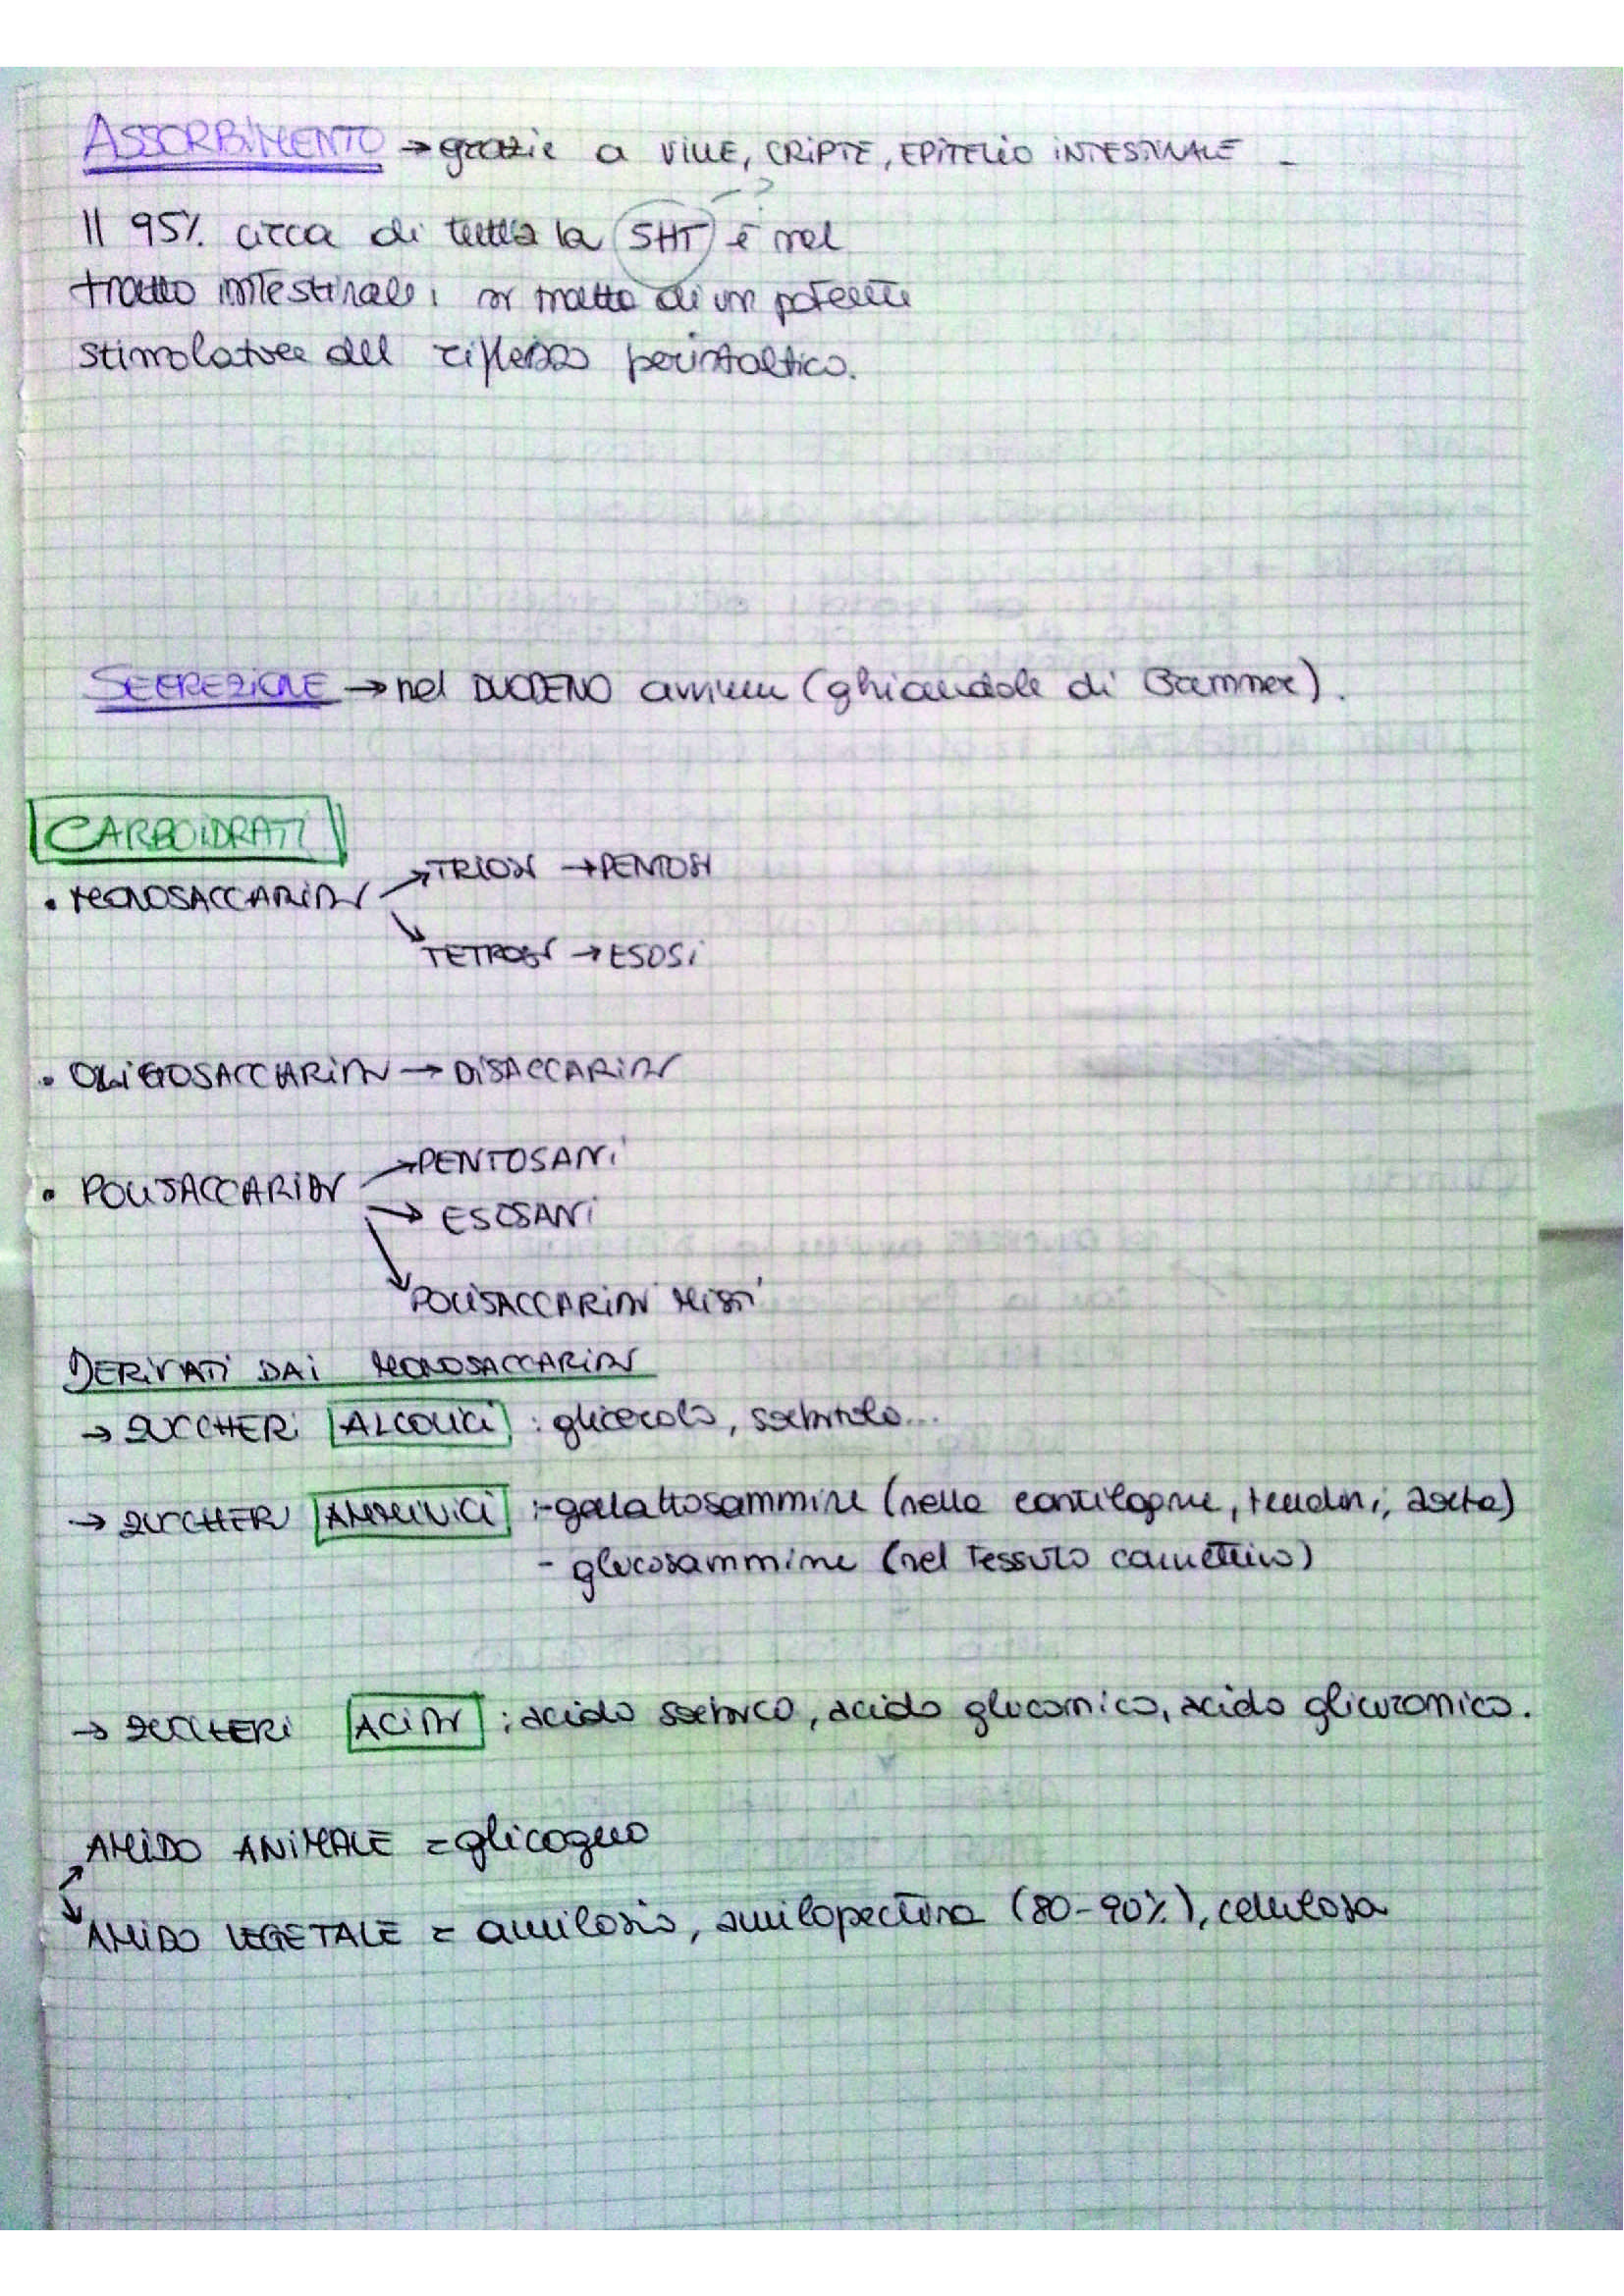 ASSORBIMENTO → grazie a VILLE, CRIPTE, EPITELIO INTESTINALE -
?
Il 95% circa di tutta la 5HT è nel
tratto intestinale; si tratta di un potente
stimolatore del riflesso peristaltico.
SECREZIONE → nel DUODENO avviene (ghiandole di Brammer).
CARBOIDRATI
• MONOSACCARIDI → TRIOSI → PENTOSI
→ TETROSI → ESOSI
• OLIGOSACCARIDI → DISACCARIDI
• POLISACCARIDI → PENTOSANI
→ ESOSANI
→ POLISACCARIDI MISTI
DERIVATI DAI MONOSACCARIDI
→ ZUCCHERI ALCOLICI : glicerolo, sorbitolo...
→ ZUCCHERI AMMINICI : - galattosammine (nelle cartilagine, tendini, aorta)
- glucosammine (nel tessuto connettivo)
→ ZUCCHERI ACIDI : acido sorbico, acido gluconico, acido glicuronico.
AMIDO ANIMALE = glicogeno
AMIDO VEGETALE = amilosio, amilopectina (80-90%), cellulosa